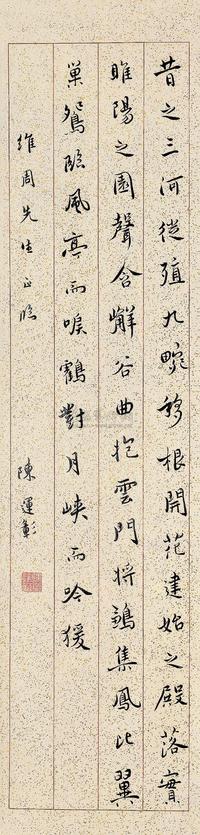 昔之三河從殖九畹移根開花建始之殿落實
睢陽之園聲含嶰谷曲抱雲門將鶵集鳳比翼
巢鴛臨風亭而唳鶴對月峽而吟猨
維周先生正臨
陳運彰